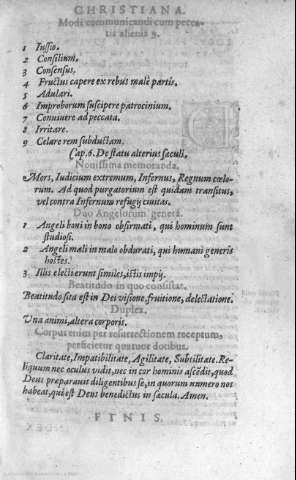 CHRISTIANA.
Modi communicandi cum pecca-
tis alienis 9.
1 Iussio.
2 Consilium.
3 Consensus.
4 Fructus capere ex rebus malè partis.
5 Adulari.
6 Improborum suscipere patrocinium.
7 Conniuere ad peccata.
8 Irritare.
9 Celare rem subductam.
Cap. 6. De statu alterius sæculi.
Nouissima memoranda.
Mors, Iudicium extremum, Infernus, Regnum cœlo-
rum. Ad quod purgatorium est quidam transitus,
vel contra Infernum refugij ciuitas.
Duo Angelorum genera.
1 Angeli boni in bono obfirmati, qui hominum sunt
studiosi.
2 Angeli mali in malo obdurati, qui humani generis
hostes.
3. Illis electi erunt similes, istis impij.
Beatitudo in quo consistat.
Beatitudo sita est in Dei visione, fruitione, delectatione.
Duplex.
Vna animi, altera corporis.
Corpus enim per resurrectionem receptum,
perficietur quatuor dotibus.
Claritate, Impatibilitate, Agilitate, Subtilitate. Re-
liquum nec oculus vidit, nec in cor hominis ascēdit, quod
Deus preparauit diligentibus se, in quorum numero nos
habeat, qui est Deus benedictus in sæcula. Amen.
FINIS.